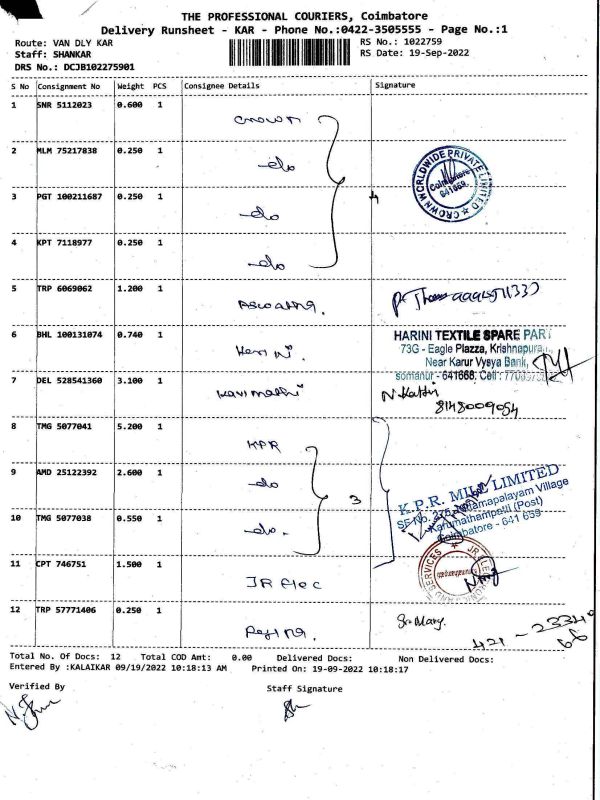 THE PROFESSIONAL COURIERS, Coimbatore
Delivery Runsheet - KAR - Phone No.:0422-3505555 - Page No.:1
Route: VAN DLY KAR
Staff: SHANKAR
DRS No.: DCJB102275901
RS No.: 1022759
RS Date: 19-Sep-2022
S No Consignment No Weight PCS Consignee Details Signature
1 SNR 5112023 0.600 1 Crown
2 MLM 75217838 0.250 1 -do
CROWN WORLDWIDE PRIVATE LIMITED
Coimbatore
641659.
3 PGT 100211687 0.250 1 -do
4
4 KPT 7118977 0.250 1 -do
5 TRP 6069062 1.200 1
6 BHL 100131074 0.740 1
HARINI TEXTILE SPARE PAR
73G - Eagle Plazza, Krishnapura
Near Karur Vysya Bank,
somanur - 641668, Cell :
7 DEL 528541360 3.100 1 Kavimathi
8148009054
8 TMG 5077041 5.200 1 KPR
9 AMD 25122392 2.600 1 -do
3
K.P.R. MILL LIMITED
10 TMG 5077038 0.550 1 -do.
Karumathampatti (Post)
Coimbatore - 641 659
11 CPT 746751 1.500 1 JR Elec
12 TRP 57771406 0.250 1
Sr. Mary.
Total No. Of Docs: 12 Total COD Amt: 0.00 Delivered Docs: Non Delivered Docs:
Entered By :KALAIKAR 09/19/2022 10:18:13 AM Printed On: 19-09-2022 10:18:17
Verified By
Staff Signature